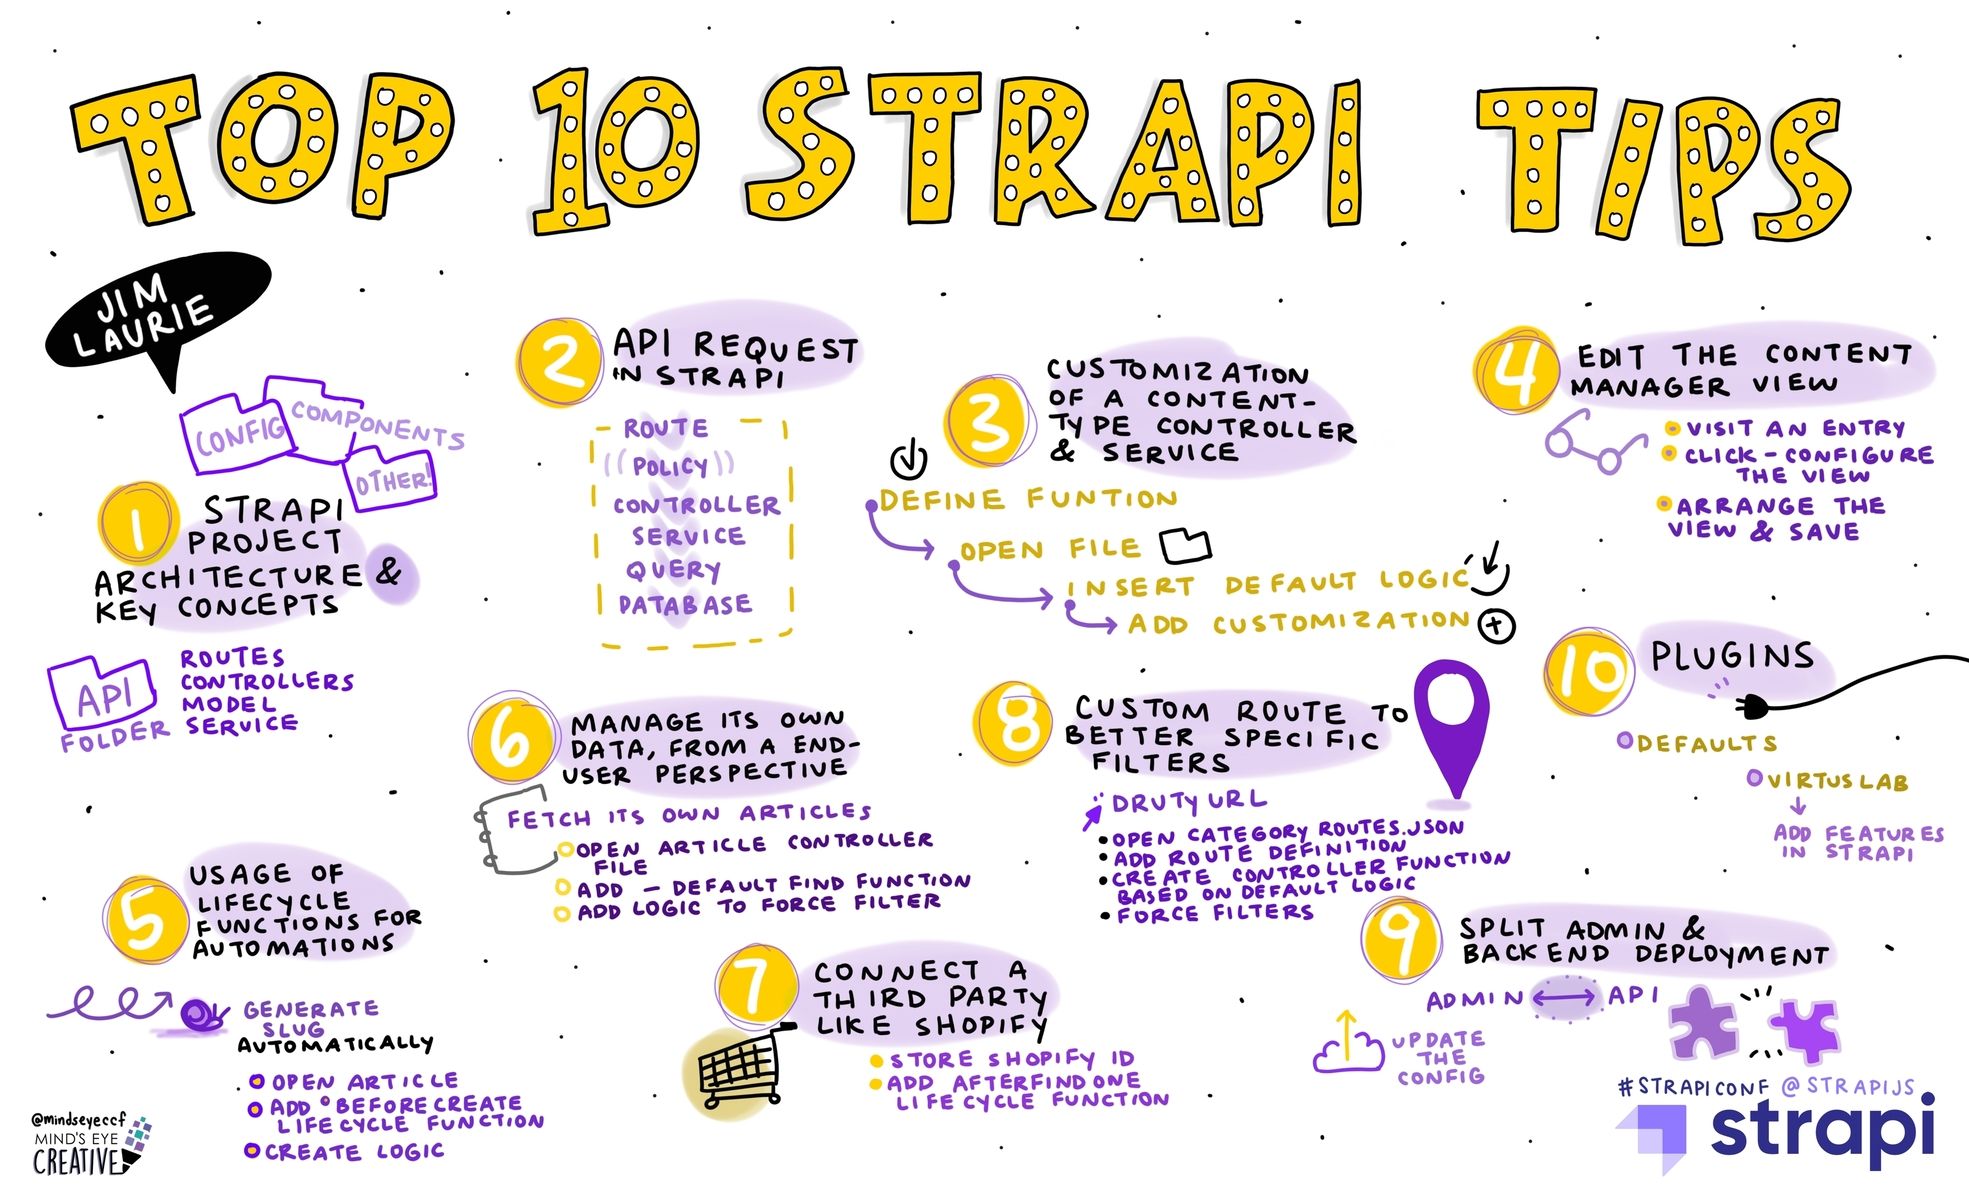 TOP 10 STRAPI TIPS
JIM
LAURIE
CONFIG
COMPONENTS
OTHER!
1
STRAPI
PROJECT
ARCHITECTURE &
KEY CONCEPTS
API
FOLDER
ROUTES
CONTROLLERS
MODEL
SERVICE
2
API REQUEST
IN STRAPI
ROUTE
((POLICY))
CONTROLLER
SERVICE
QUERY
DATABASE
3
CUSTOMIZATION
OF A CONTENT-
TYPE CONTROLLER
& SERVICE
DEFINE FUNTION
OPEN FILE
INSERT DEFAULT LOGIC
ADD CUSTOMIZATION
4
EDIT THE CONTENT
MANAGER VIEW
VISIT AN ENTRY
CLICK - CONFIGURE
THE VIEW
ARRANGE THE
VIEW & SAVE
5
USAGE OF
LIFECYCLE
FUNCTIONS FOR
AUTOMATIONS
GENERATE
SLUG
AUTOMATICALLY
OPEN ARTICLE
ADD °BEFORECREATE
LIFECYCLE FUNCTION
CREATE LOGIC
6
MANAGE ITS OWN
DATA, FROM A END-
USER PERSPECTIVE
FETCH ITS OWN ARTICLES
OPEN ARTICLE CONTROLLER
FILE
ADD - DEFAULT FIND FUNCTION
ADD LOGIC TO FORCE FILTER
7
CONNECT A
THIRD PARTY
LIKE SHOPIFY
STORE SHOPIFY ID
ADD AFTERFINDONE
LIFECYCLE FUNCTION
8
CUSTOM ROUTE TO
BETTER SPECIFIC
FILTERS
DRUTY URL
OPEN CATEGORY ROUTES.JSON
ADD ROUTE DEFINITION
CREATE CONTROLLER FUNCTION
BASED ON DEFAULT LOGIC
FORCE FILTERS
9
SPLIT ADMIN &
BACKEND DEPLOYMENT
ADMIN
API
UPDATE
THE
CONFIG
10
PLUGINS
DEFAULTS
VIRTUSLAB
ADD FEATURES
IN STRAPI
#STRAPICONF @STRAPIJS
strapi
@mindseyeccf
MIND'S EYE
CREATIVE